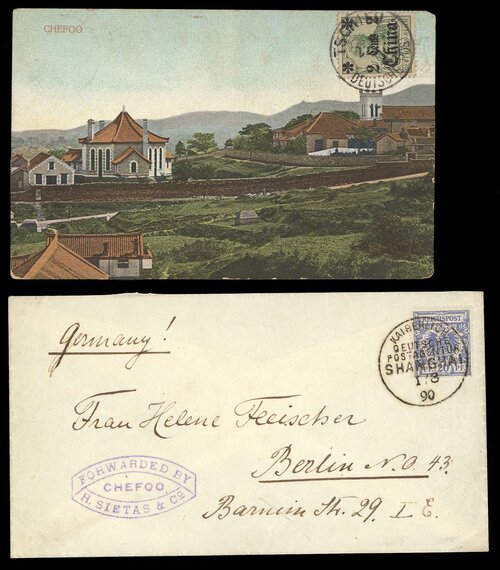 CHEFOO
TSCHIFU
2 Cents
China
DEUTSCHE
Germany!
REICHSPOST
KAISERL.
DEUTSCHE
POSTAGENTUR
SHANGHAI
1/8
90
Frau Helene Fleischer
Berlin N.O. 43.
Barnim Str. 29. I E.
FORWARDED BY
CHEFOO
H. SIETAS & Co